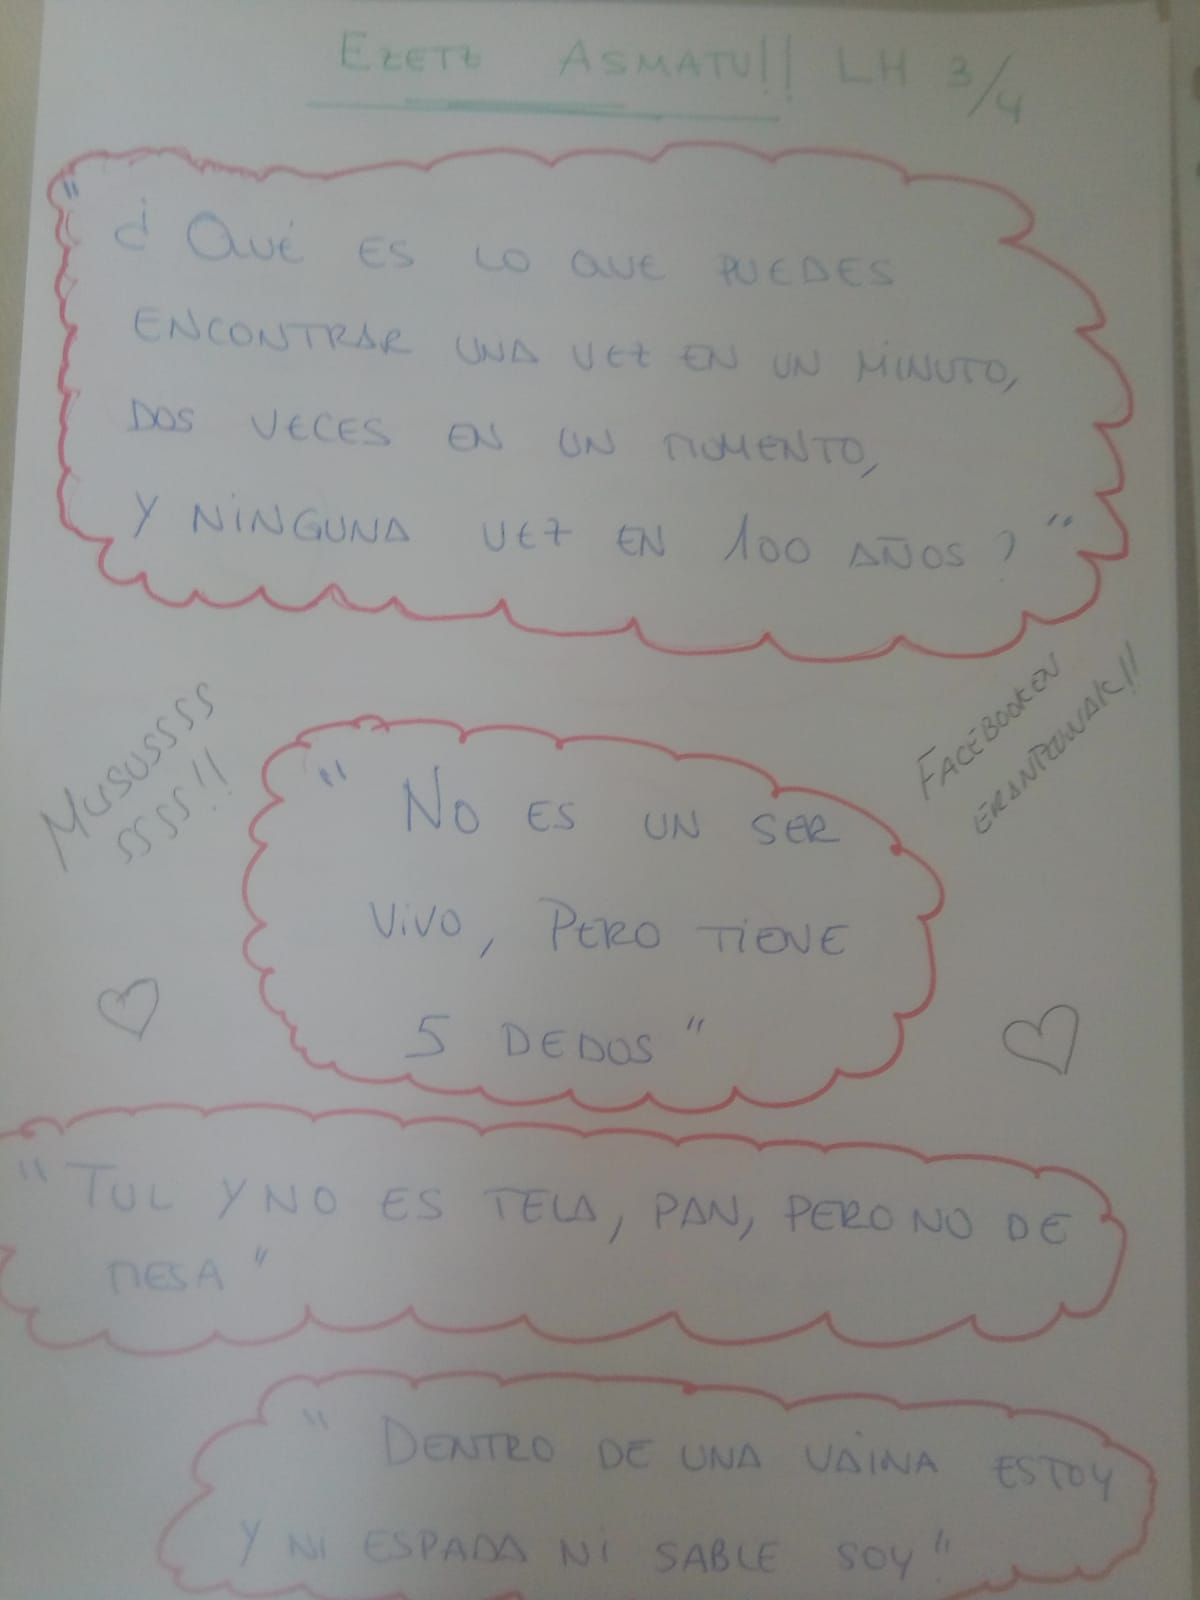 EZETZ ASMATU!! LH 3/4
"¿QUÉ ES LO QUE PUEDES
ENCONTRAR UNA VEZ EN UN MINUTO,
DOS VECES EN UN MOMENTO,
Y NINGUNA VEZ EN 100 AÑOS?"
MUSUSSSS
SSSS!!
FACEBOOKEN
ERANTZUNAK!!
"NO ES UN SER
VIVO, PERO TIENE
5 DEDOS"
"TUL Y NO ES TELA, PAN, PERO NO DE
MESA"
"DENTRO DE UNA VAINA ESTOY
Y NI ESPADA NI SABLE SOY"